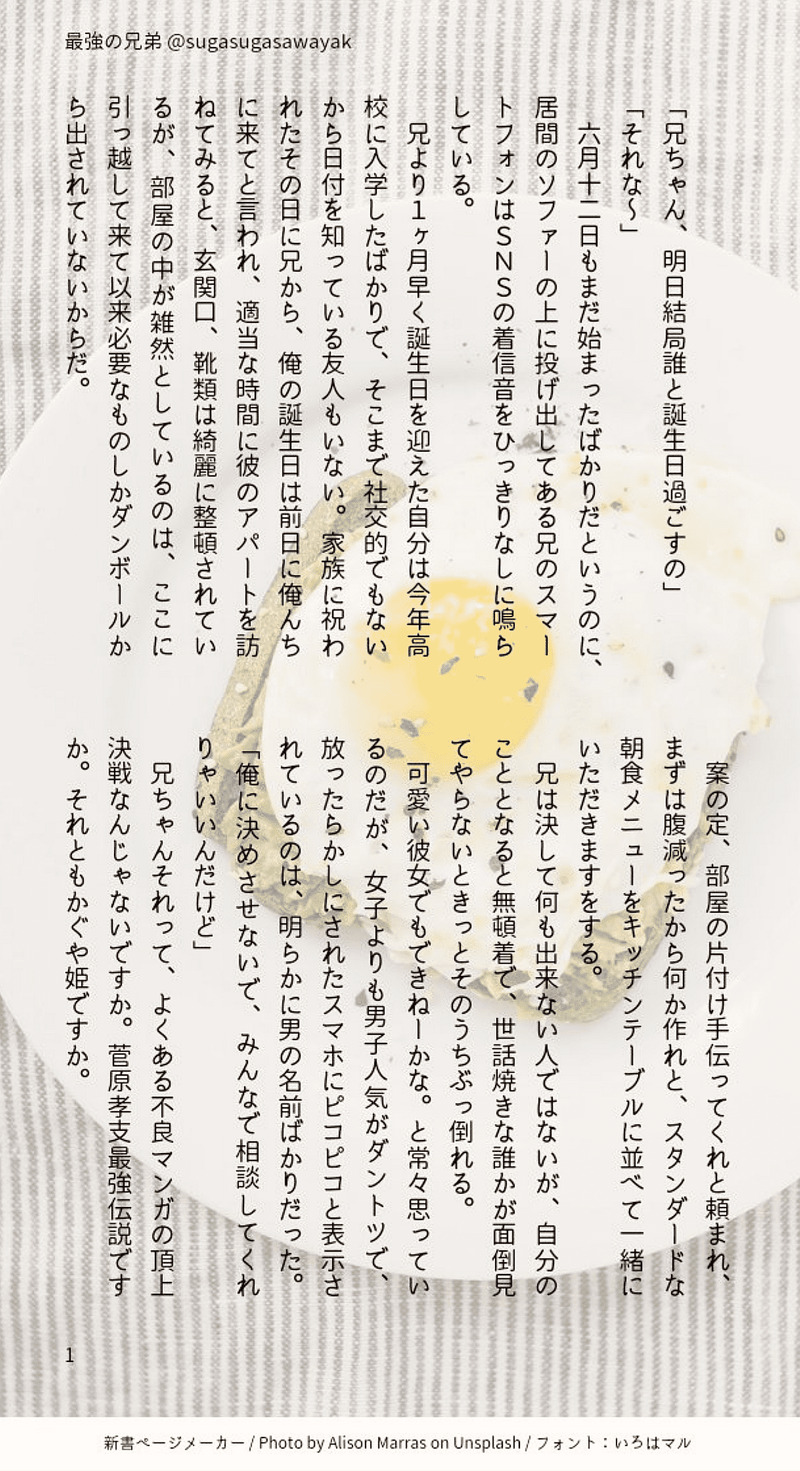 最強の兄弟 @sugasugasawayak
「兄ちゃん、明日結局誰と誕生日過ごすの」
「それな〜」
六月十二日もまだ始まったばかりだというのに、
居間のソファーの上に投げ出してある兄のスマー
トフォンはＳＮＳの着信音をひっきりなしに鳴ら
している。
兄より１ヶ月早く誕生日を迎えた自分は今年高
校に入学したばかりで、そこまで社交的でもない
から日付を知っている友人もいない。家族に祝わ
れたその日に兄から、俺の誕生日は前日に俺んち
に来てと言われ、適当な時間に彼のアパートを訪
ねてみると、玄関口、靴類は綺麗に整頓されてい
るが、部屋の中が雑然としているのは、ここに
引っ越して来て以来必要なものしかダンボールか
ら出されていないからだ。
案の定、部屋の片付け手伝ってくれと頼まれ、
まずは腹減ったから何か作れと、スタンダードな
朝食メニューをキッチンテーブルに並べて一緒に
いただきますをする。
兄は決して何も出来ない人ではないが、自分の
こととなると無頓着で、世話焼きな誰かが面倒見
てやらないときっとそのうちぶっ倒れる。
可愛い彼女でもできねーかな。と常々思ってい
るのだが、女子よりも男子人気がダントツで、
放ったらかしにされたスマホにピコピコと表示さ
れているのは、明らかに男の名前ばかりだった。
「俺に決めさせないで、みんなで相談してくれ
りゃいいんだけど」
兄ちゃんそれって、よくある不良マンガの頂上
決戦なんじゃないですか。菅原孝支最強伝説です
か。それともかぐや姫ですか。
1
新書ページメーカー / Photo by Alison Marras on Unsplash / フォント：いろはマル